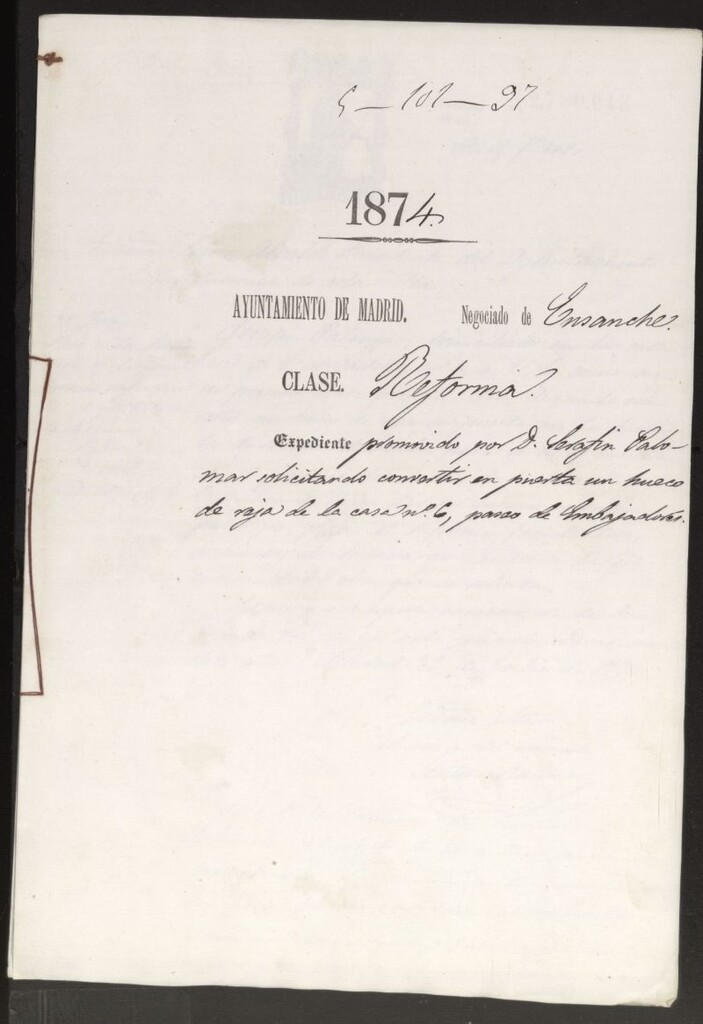 5 - 101 - 97
1874.
AYUNTAMIENTO DE MADRID. Negociado de Ensanche.
CLASE. Reforma.
Expediente promovido por D. Serafin Palo-
mar solicitando convertir en puerta un hueco
de reja de la casa nº. 6, paseo de Embajadores.